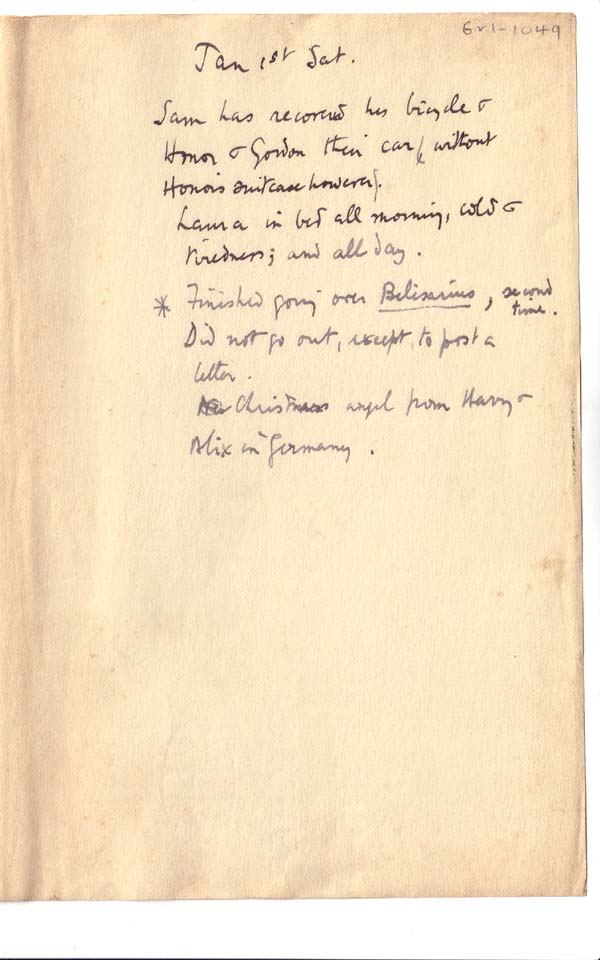 Gr1-1049
Jan 1st Sat.
Sam has recovered his bicycle &
Honor & Gordon their car, without
Honor's suitcase however.
Laura in bed all morning, cold &
tiredness; and all day.
* Finished going over Belisarius, second
time.
Did not go out, except to post a
letter.
Christmas angel from Harry &
Alix in Germany.